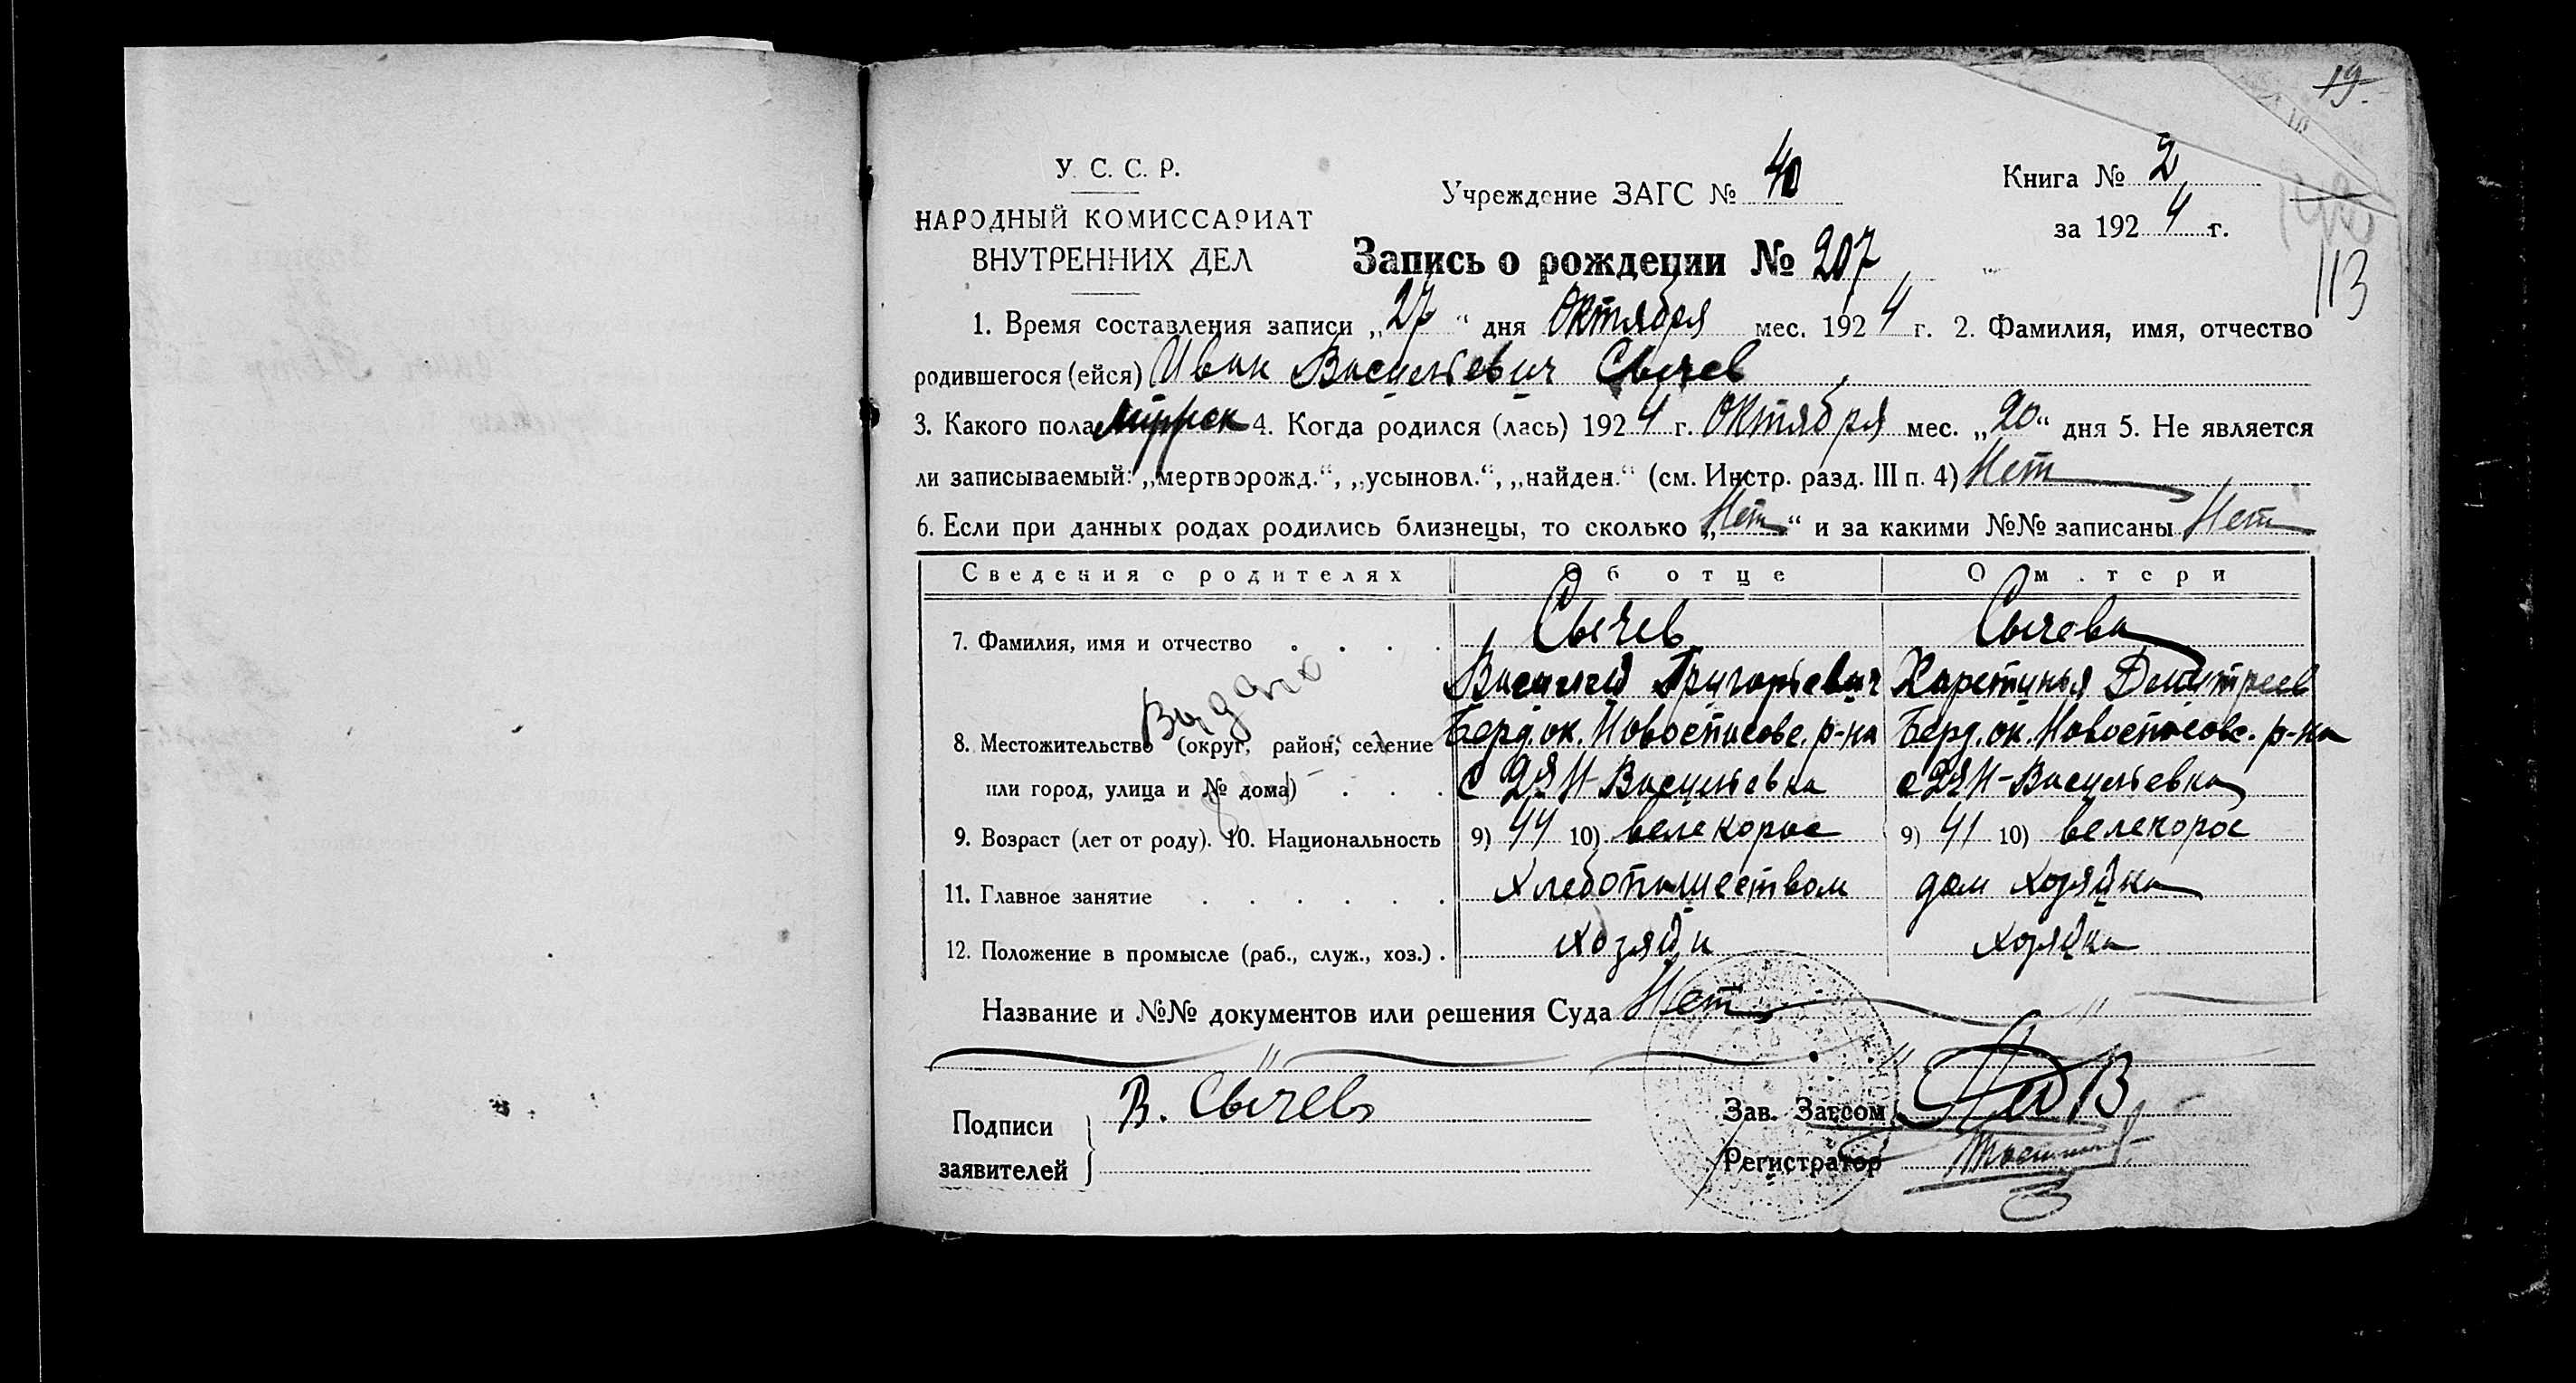 19.
У. С. С. Р.
НАРОДНЫЙ КОМИССАРИАТ
ВНУТРЕННИХ ДЕЛ
Учреждение ЗАГС № 40
Книга № 2
за 1924 г.
113
Запись о рождении № 207
1. Время составления записи „27“ дня Октября мес. 1924 г. 2. Фамилия, имя, отчество
родившегося (ейся) Иван Васильевич Сычев
3. Какого пола мужск 4. Когда родился (лась) 1924 г. Октября мес. „20“ дня 5. Не является
ли записываемый: „мертворожд.“, „усыновл.“, „найден.“ (см. Инстр. разд. III п. 4) Нет
6. Если при данных родах родились близнецы, то сколько „Нет“ и за какими №№ записаны Нет
Сведения о родителях Об отце О м.тери
7. Фамилия, имя и отчество . . . . Сычев Сычева
Василий Григорьевич Харетинья Дмитреев
Выдано
8. Местожительство (округ, район, селение Берд. ок. Новоспасовс. р-на Берд. ок. Новоспасовс. р-на
или город, улица и № дома) . . . с 2я Н-Васильевка с 2я Н-Васильевка
9. Возраст (лет от роду). 10. Национальность 9) 44 10) велекорос 9) 41 10) велекорос
11. Главное занятие . . . . . . Хлебопашеством дом хозяйка
12. Положение в промысле (раб., служ., хоз.) . хозяйн хозяйка
Название и №№ документов или решения Суда Нет
Подписи
заявителей
В. Сычев
Зав. Загсом
Регистратор